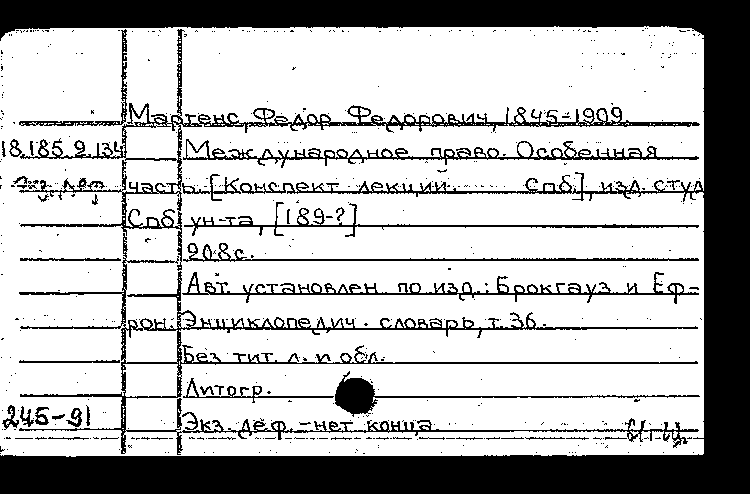 Мартенс, Федор Федорович, 1845-1909.
18.185.9.134 Международное право. Особенная
Экз. деф. часть. [Конспект лекций. Спб.], изд. студ
Спб. ун-та, [189-?]
208 с.
Авт. установлен по изд.: Брокгауз и Еф-
рон. Энциклопедич. словарь, т. 36.
Без тит. л. и обл.
Литогр.
245-91 Экз. деф. - нет конца